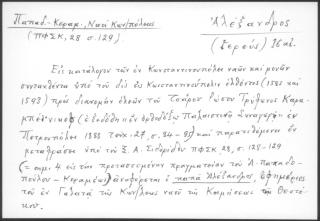 Παπαδ.-Κεραμ., Ναοί Κων/πόλεως
(ΠΦΣΚ, 28 σ. 129)
Ἀλέξανδρος
(ἱερεύς) 16 αἰ.
Εἰς κατάλογον τῶν ἐν Κωνσταντινουπόλει ναῶν καὶ μονῶν
συνταχθέντα ὑπὸ τοῦ εἰς Κωνσταντινούπολιν ἐλθόντος (1582 καὶ
1593) πρὸς διανομὴν ἐλεῶν τοῦ Τσάρου Ρώσου Τρύφωνος Καρα-
μπέϊνικοφ (ἐξεδόθη ἐν ὀρθοδόξῳ Παλαιστινῇ Συναγωγῇ ἐν
Πετρουπόλει 1888 τεῦχ. 27, σ. 84-95) καὶ παρατιθέμενον ἐν
μεταφράσει ὑπὸ τοῦ Ξ. Α. Σιδερίδου ΠΦΣΚ 28, σ. 128-129
(= σημ. 4 εἰς τὴν προτασσομένην πραγματείαν τοῦ Α. Παπαδο-
πούλου-Κεραμέως) ἀναφέρεται ὁ παπᾶ Ἀλέξανδρος, ἐφημέριος
τοῦ ἐν Γαλατᾷ τῆς Κων/λεως ναοῦ τῆς Κοιμήσεως τῆς Θεοτό-
κου.